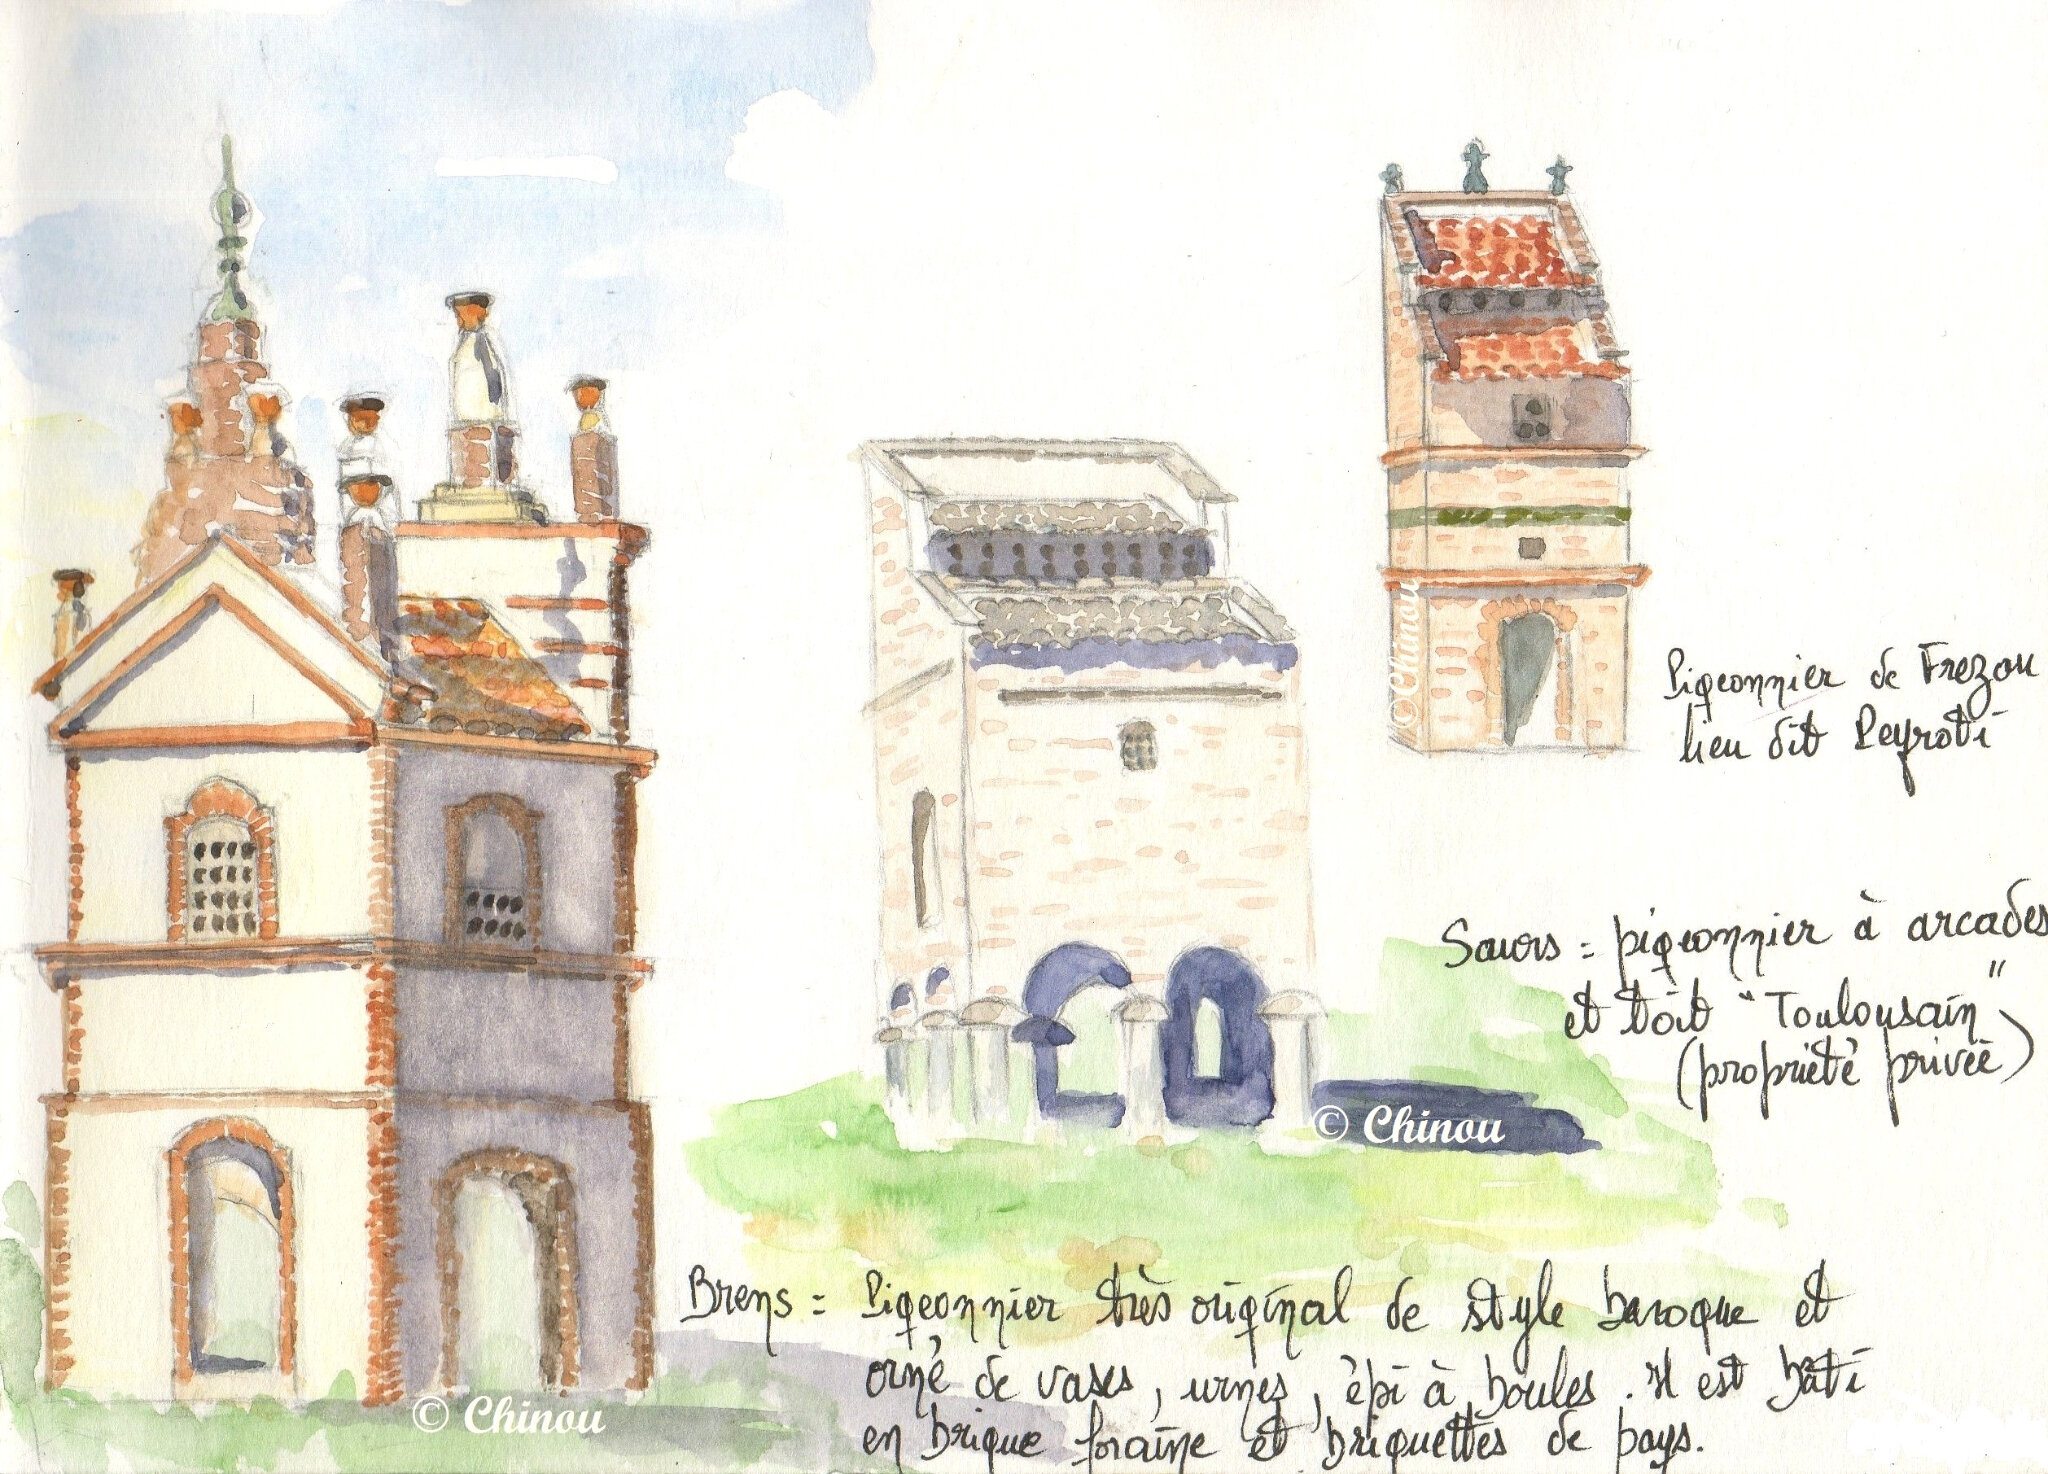 Pigeonnier de Frezou
lieu dit Peyroti
© Chinou
Saurs = pigeonnier à arcades
et toit "Toulousain"
(propriété privée)
© Chinou
Brens = Pigeonnier très original de style baroque et
orné de vases, urnes, épi à boules. Il est bâti
en brique foraine et briquettes de pays.
© Chinou